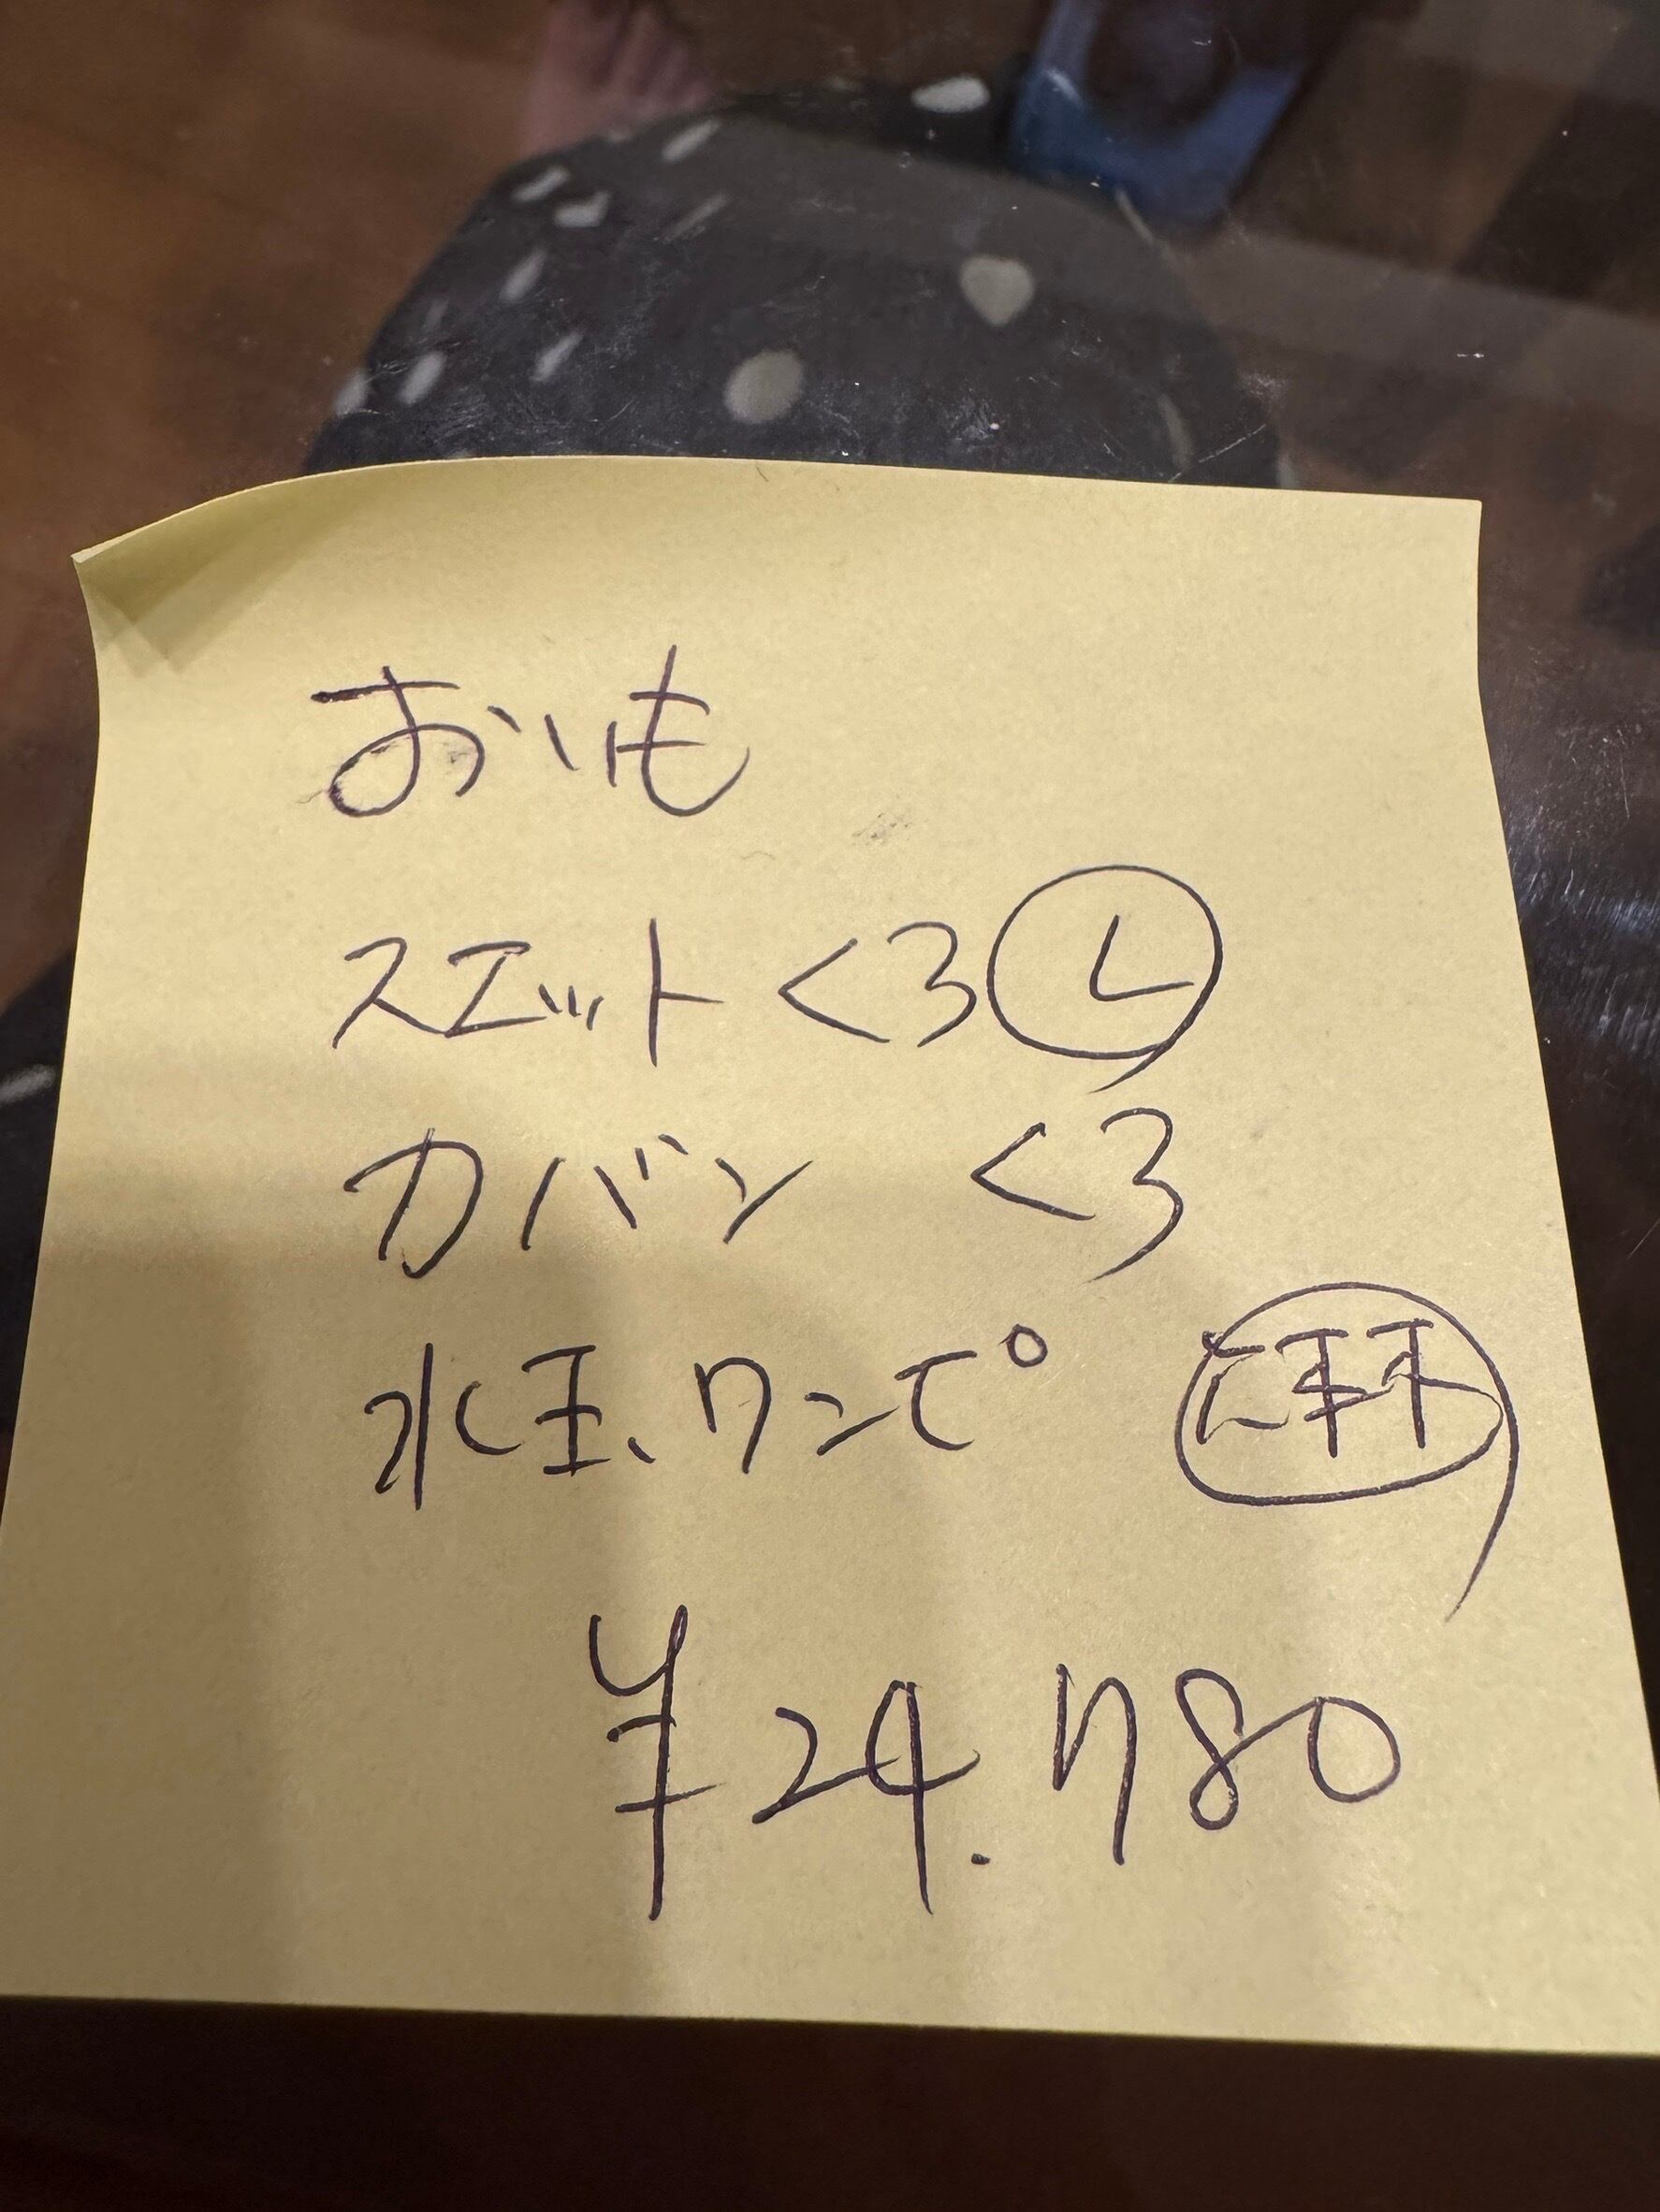 おいも
スエット くろ L
カバン くろ
水玉、ワンピ
¥24.780